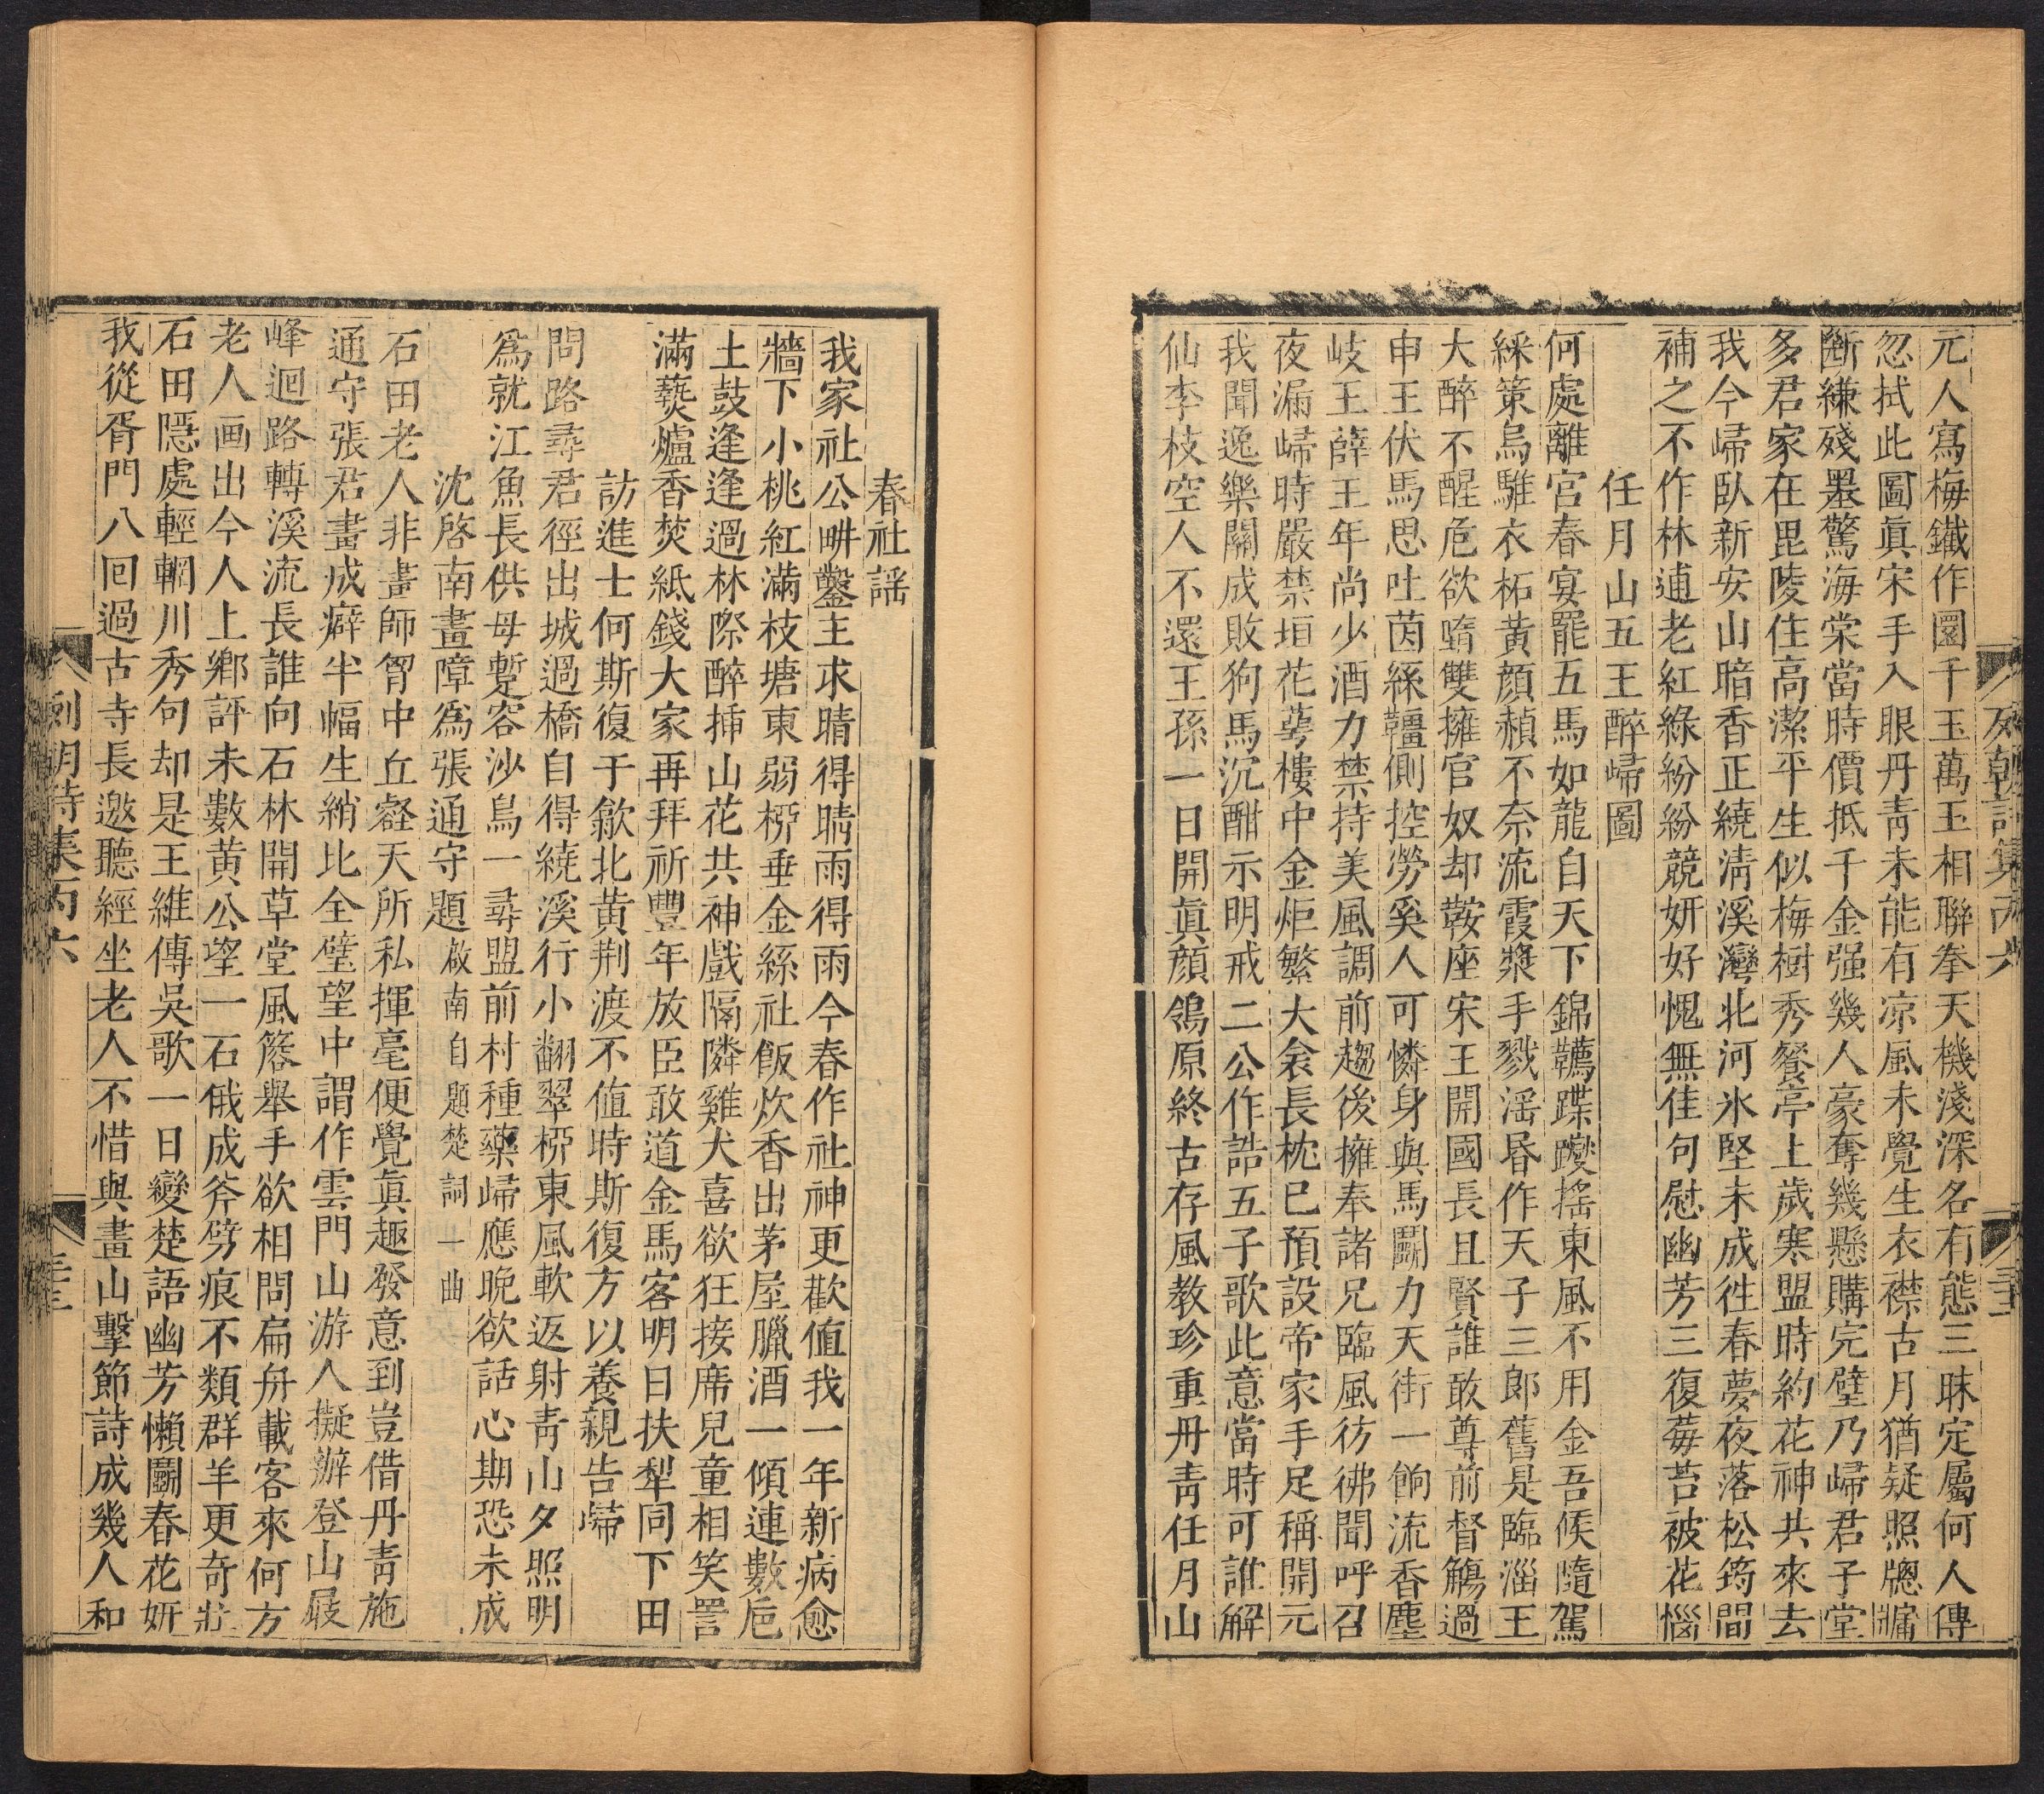 元人寫梅鐵作圈千玉萬玉相聯拳天機淺深名有態三昧定屬何人傳
忽拭此圖眞宋手入眼丹靑未能有凉風未覺生衣襟古月猶疑照牎牖
斷縑殘墨驚海棠當時價抵千金强幾人豪奪幾懸購完璧乃歸君子堂
多君家在毘陵住高潔平生似梅樹秀餐亭上歲寒盟時約花神共來去
我今歸臥新安山暗香正繞淸溪灣北河氷堅未成徃春夢夜落松筠間
補之不作林逋老紅綠紛紛競妍好愧無佳句慰幽芳三復莓苔被花惱
任月山五王醉歸圖
何處離宮春宴罷五馬如龍自天下錦韉蹀躞搖東風不用金吾候隨駕
綵策烏騅衣柘黃顏赬不奈流霞漿手戮滛昏作天子三郞舊是臨淄王
大醉不醒危欲墮雙擁官奴却鞍座宋王開國長且賢誰敢尊前督觴過
申王伏馬思吐茵絲韁側控勞奚人可憐身與馬鬭力天街一餉流香塵
岐王薛王年尚少酒力禁持美風調前趨後擁奉諸兄臨風彷彿聞呼召
夜漏歸時嚴禁垣花萼樓中金炬繁大衾長枕巳預設帝家手足稱開元
我聞逸樂關成敗狗馬沉酣示明戒二公作誥五子歌此意當時可誰解
仙李枝空人不還王孫一日開眞顏鴒原終古存風教珍重丹靑任月山
春社謡
我家社公畊鑿主求晴得晴雨得雨今春作社神更歡値我一年新病愈
牆下小桃紅滿枝塘東弱桺垂金絲社飯炊香出茅屋臘酒一傾連數巵
土鼓逢逢過林際醉揷山花共神戲隔隣雞犬喜欲狂接席兒童相笑詈
滿爇爐香焚紙錢大家再拜祈豐年放臣敢道金馬客明日扶犁同下田
訪進士何斯復于歙北黃荆渡不値時斯復方以養親告歸
問路尋君徑出城過橋自得繞溪行小翻翠桺東風軟返射靑山夕照明
爲就江魚長供母暫容沙鳥一尋盟前村種藥歸應晚欲話心期恐未成
沈啓南畫障爲張通守題啟南自題楚詞一曲
石田老人非畫師胷中丘壑天所私揮毫便覺眞趣發意到豈借丹靑施
通守張君畫成癖半幅生綃比全璧望中謂作雲門山游人擬辦登山屐
峰迴路轉溪流長誰向石林開草堂風簷舉手欲相問扁舟載客來何方
老人画出今人上鄕評未數黃公望一石俄成斧劈痕不類群羊更奇壯
石田隱處輕輞川秀句却是王維傳吳歌一日變楚語幽芳懶鬭春花妍
我從胥門八回過古寺長邀聽經坐老人不惜與畫山擊節詩成幾人和
列朝詩集丙六